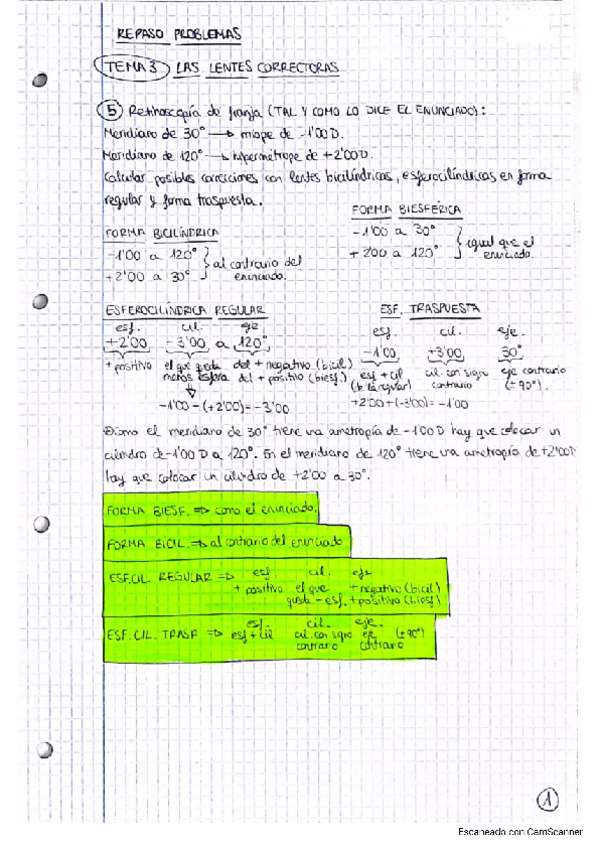 REPASO PROBLEMAS
TEMA 3 LAS LENTES CORRECTORAS
5 Retinoscopía de franja (TAL Y COMO LO DICE EL ENUNCIADO):
Meridiano de 30° → miope de -1'00 D.
Meridiano de 120° → hipermétrope de +2'00 D.
Calcular posibles correcciones con lentes bicilíndricas, esferocilíndricas en forma
regular y forma traspuesta.
FORMA BICILÍNDRICA
-1'00 a 120°
+2'00 a 30°
al contrario del
enunciado.
FORMA BIESFÉRICA
-1'00 a 30°
+2'00 a 120°
igual que el
enunciado.
ESFEROCILÍNDRICA REGULAR
esf. cil. eje
+2'00 -3'00 a 120°
+ positivo el que queda del + negativo (bicil)
menos esfera del + positivo (biesf.)
-1'00 - (+2'00) = -3'00
ESF. TRASPUESTA
esf. cil. eje.
-1'00 +3'00 30°
esf + cil cil. con signo eje contrario
(la regular) contrario (± 90°).
+2'00 + (-3'00) = -1'00
como el meridiano de 30° tiene una ametropía de -1'00 D hay que colocar un
cilindro de -1'00 D a 120°. En el meridiano de 120° tiene una ametropía de +2'00 D
hay que colocar un cilindro de +2'00 a 30°.
FORMA BIESF. ⇒ como el enunciado.
FORMA BICIL. ⇒ al contrario del enunciado
ESF.CIL. REGULAR ⇒ esf. cil. eje
+ positivo el que + negativo (bicil)
queda - esf. + positivo (biesf)
esf. cil. eje.
ESF. CIL. TRASP ⇒ esf + cil cil. con signo eje (± 90°)
contrario contrario
1
Escaneado con CamScanner